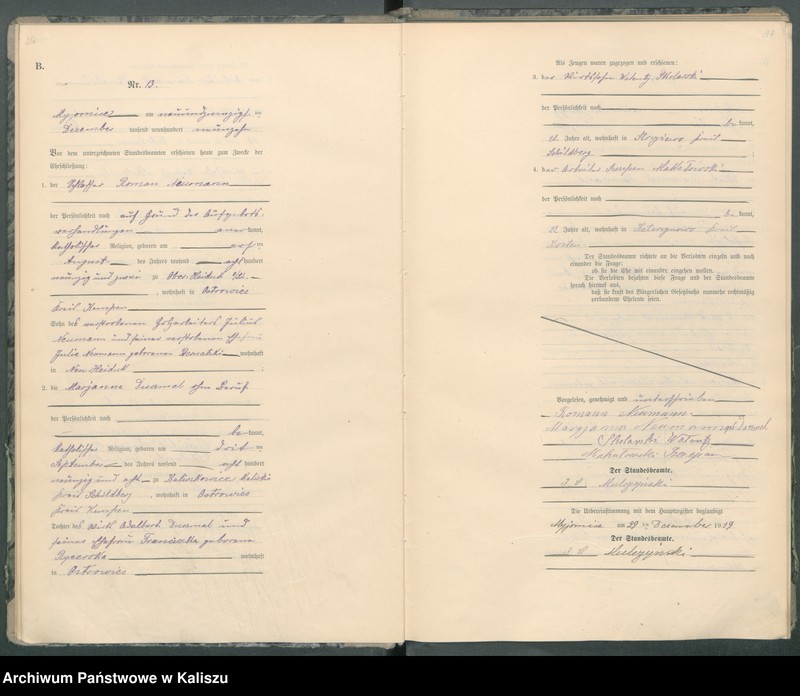 B.
Nr. 13.
Myjomice am neunundzwanzigsten
Dezember tausend neunhundert neunzehn
Vor dem unterzeichneten Standesbeamten erschienen heute zum Zwecke der
Eheschließung:
1. der Schlosser Roman Neumann
der Persönlichkeit nach auf Grund des Aufgebots-
verhandlungen anerkannt,
katholischer Religion, geboren am ersten
August des Jahres tausend achthundert
neunzig und zwei zu Ober Heiduk
, wohnhaft in Ostrowiec
Kreis Kempen
Sohn des verstorbenen Julius
Neumann und seiner verstorbenen Ehefrau
Julie Neumann geborenen wohnhaft
in Neu Heiduk
2. die Marjanna Dusmel ohne Beruf
der Persönlichkeit nach
bekannt,
katholischer Religion, geboren am dritten
September des Jahres tausend achthundert
neunzig und acht zu Kaliszkowice Kaliskie
Kreis Schildberg, wohnhaft in Ostrowiec
Kreis Kempen
Tochter des Wirts Adalbert und
seiner Ehefrau Franciszka geborene
wohnhaft
in Ostrowiec
Als Zeugen waren zugezogen und erschienen:
3. der Wirtssohn
der Persönlichkeit nach
bekannt,
Jahre alt, wohnhaft in Kreis
Schildberg
4. der Arbeiter
der Persönlichkeit nach
bekannt,
22 Jahre alt, wohnhaft in Kreis
Kosten
Der Standesbeamte richtete an die Verlobten einzeln und nach
einander die Frage:
ob sie die Ehe mit einander eingehen wollen.
Die Verlobten bejahten diese Frage und der Standesbeamte
sprach hierauf aus,
daß sie kraft des Bürgerlichen Gesetzbuchs nunmehr rechtmäßig
verbundene Eheleute seien.
Vorgelesen, genehmigt und unterschrieben
Roman Neumann
Maryjanna Neumann
Skalavski
Der Standesbeamte.
I. V. Mulczyński
Die Uebereinstimmung mit dem Hauptregister beglaubigt
Myjomice am 29 ten Dezember 1919.
Der Standesbeamte.
I. V. Mulczyński
Archiwum Państwowe w Kaliszu